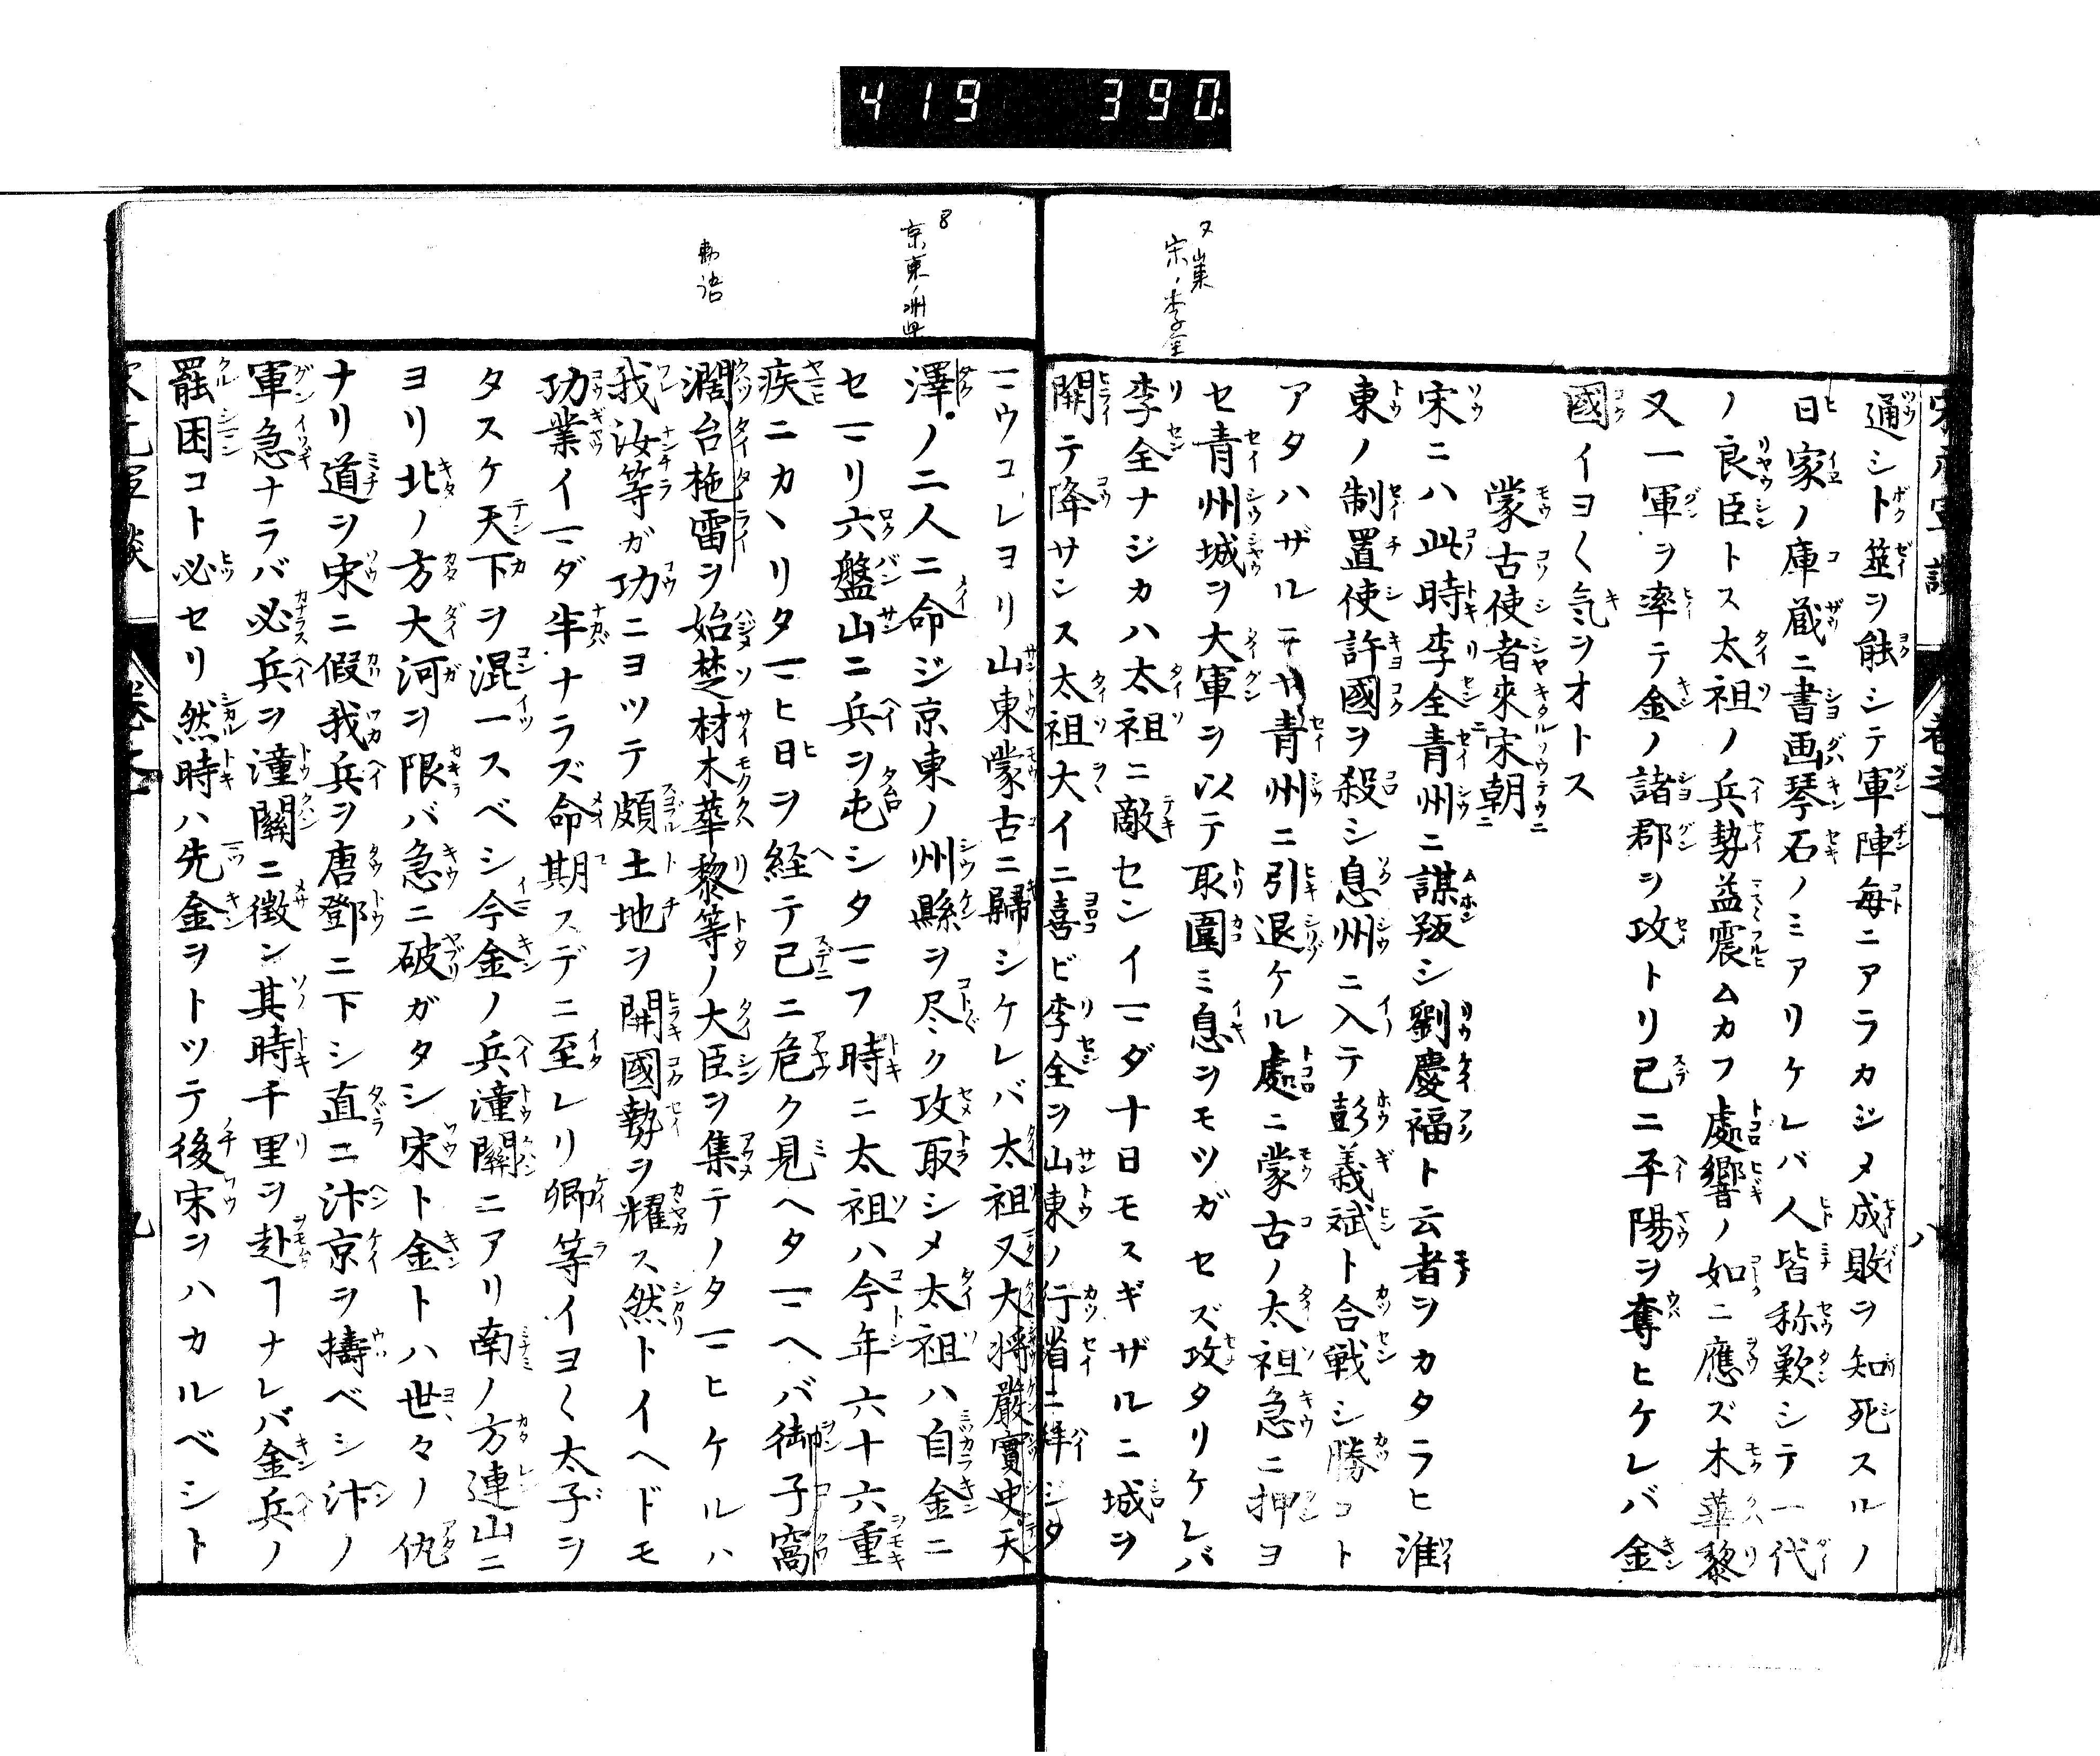 419 390
又山東
宋ノ李全
通シト筮ヲ能シテ軍陣毎ニアラカジメ成敗ヲ知死スルノ
日家ノ庫蔵ニ書画琴石ノミアリケレバ人皆称歎シテ一代
ノ良臣トス太祖ノ兵勢益震ムカフ處響ノ如ニ應ズ木華黎
又一軍ヲ率テ金ノ諸郡ヲ攻トリ已ニ平陽ヲ奪ヒケレバ金
國イヨ〱気ヲオトス
蒙古使者來宋朝
宋ニハ此時李全青州ニ謀叛シ劉慶福ト云者ヲカタラヒ淮
東ノ制置使許國ヲ殺シ息州ニ入テ彭義斌ト合戦シ勝コト
アタハザル青州ニ引退ケル處ニ蒙古ノ太祖急ニ押ヨ
セ青州城ヲ大軍ヲ以テ取圍ミ息ヲモツガセズ攻タリケレバ
李全ナジカハ太祖ニ敵センイマダ十日モスギザルニ城ヲ
開テ降サンス太祖大イニ喜ビ李全ヲ山東ノ行省ニ拝シタ
京東ノ州県
勅語
マウコレヨリ山東蒙古ニ歸シケレバ太祖又大将嚴實史天
澤ノ二人ニ命ジ京東ノ州縣ヲ尽ク攻取シメ太祖ハ自金ニ
セマリ六盤山ニ兵ヲ屯シタマフ時ニ太祖ハ今年六十六重
疾ニカヽリタマヒ日ヲ経テ已ニ危ク見ヘタマヘバ御子窩
濶台拖雷ヲ始楚材木華黎等ノ大臣ヲ集テノタマヒケルハ
我汝等ガ功ニヨツテ頗土地ヲ開國勢ヲ耀ス然トイヘドモ
功業イマダ半ナラズ命期スデニ至レリ卿等イヨ〱太子ヲ
タスケ天下ヲ混一スベシ今金ノ兵潼關ニアリ南ノ方連山ニ
ヨリ北ノ方大河ヲ限バ急ニ破ガタシ宋ト金トハ世々ノ仇
ナリ道ヲ宋ニ假我兵ヲ唐鄧ニ下シ直ニ汴京ヲ擣ベシ汴ノ
軍急ナラバ必兵ヲ潼關ニ徴ン其時千里ヲ赴ヿナレバ金兵ノ
罷困コト必セリ然時ハ先金ヲトツテ後宋ヲハカルベシト